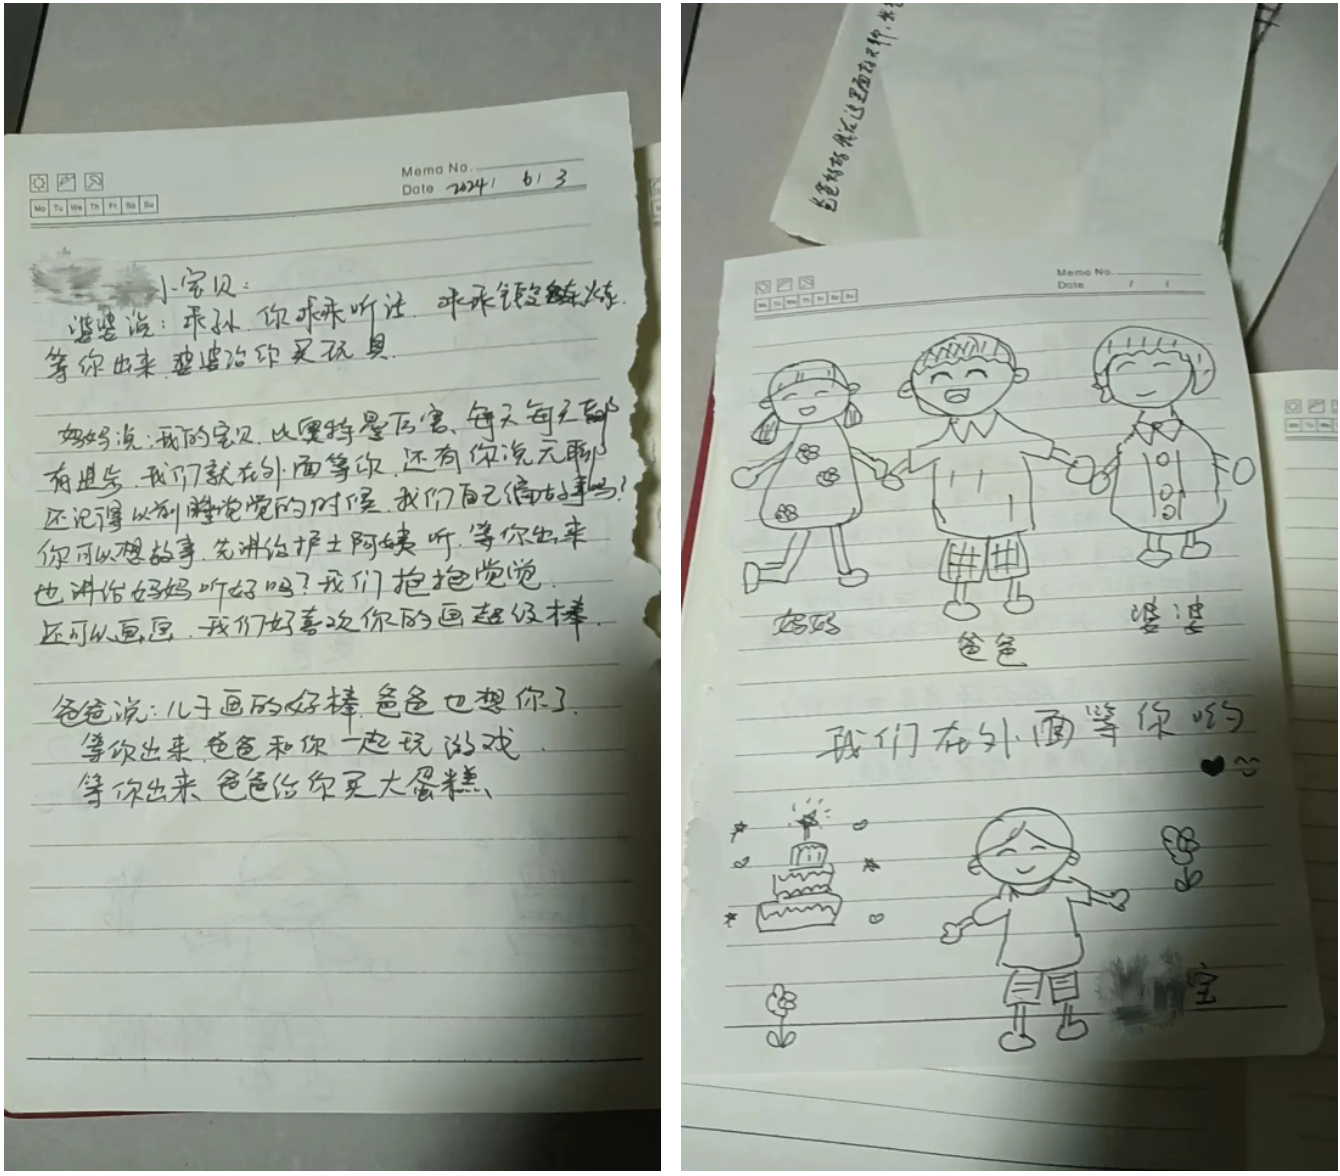 Memo No.
Date 2024 / 6 / 3
Mo Tu We Th Fr Sa Su
小宝贝:
婆婆说:乖孙,你乖乖听话,乖乖锻炼,
等你出来,婆婆给你买玩具.
妈妈说:我的宝贝,比奥特曼厉害、每天每天都
有进步,我们就在外面等你,还有你说无聊
还记得以前睡觉觉的时候,我们自己编故事吗?
你可以想故事,先讲给护士阿姨听,等你出来
也讲给妈妈听好吗?我们抱抱觉觉.
还可以画画,我们好喜欢你的画超级棒.
爸爸说:儿子画的好棒,爸爸也想你了.
等你出来,爸爸和你一起玩游戏.
等你出来,爸爸给你买大蛋糕、
爸爸妈妈我在这里面好无聊,
Memo No.
Date / /
Mo Tu We Th Fr Sa Su
妈妈
爸爸
婆婆
我们在外面等你哟
宝